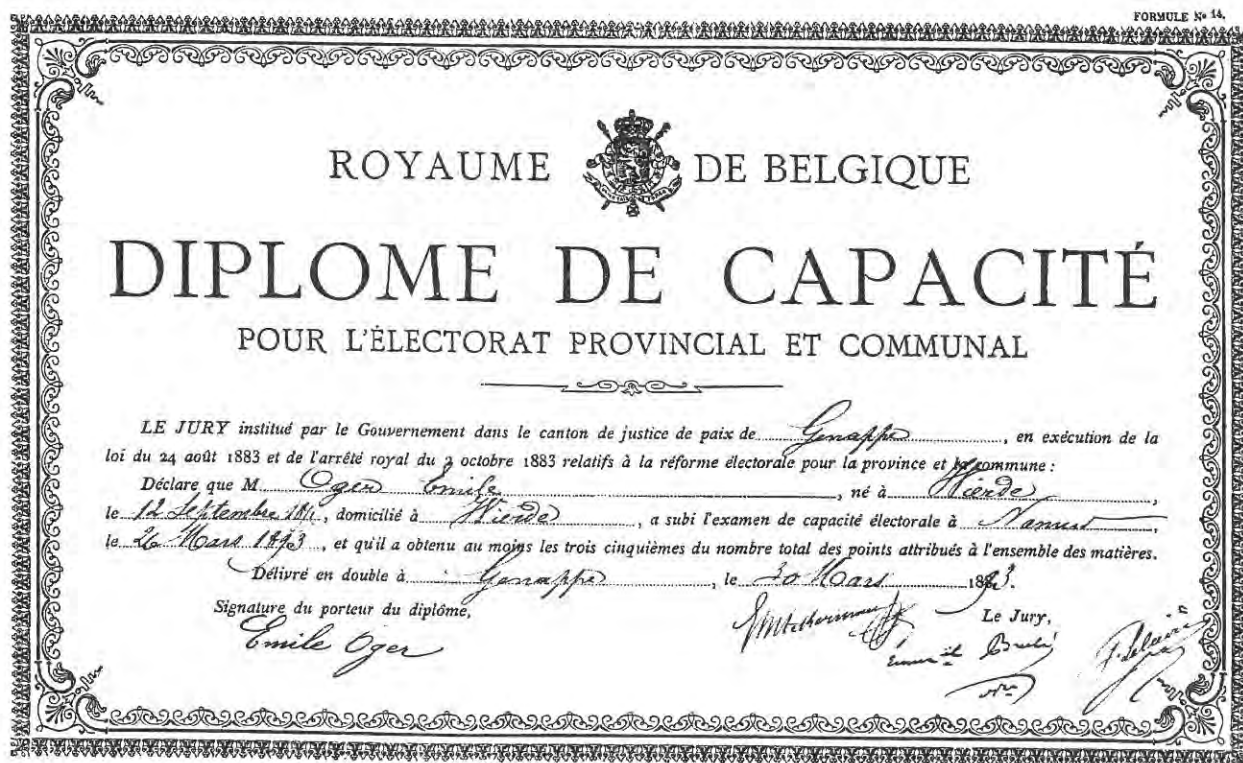 FORMULE No 14.
ROYAUME DE BELGIQUE
DIPLOME DE CAPACITÉ
POUR L'ÉLECTORAT PROVINCIAL ET COMMUNAL
LE JURY institué par le Gouvernement dans le canton de justice de paix de Genappe, en exécution de la
loi du 24 août 1883 et de l'arrêté royal du 2 octobre 1883 relatifs à la réforme électorale pour la province et la commune :
Déclare que M Oger Emile, né à Wierde,
le 12 Septembre, domicilié à Wierde, a subi l'examen de capacité électorale à Namur,
le 26 Mars 1893, et qu'il a obtenu au moins les trois cinquièmes du nombre total des points attribués à l'ensemble des matières.
Délivré en double à Genappe, le 30 Mars 1893.
Signature du porteur du diplôme,
Le Jury,
Emile Oger